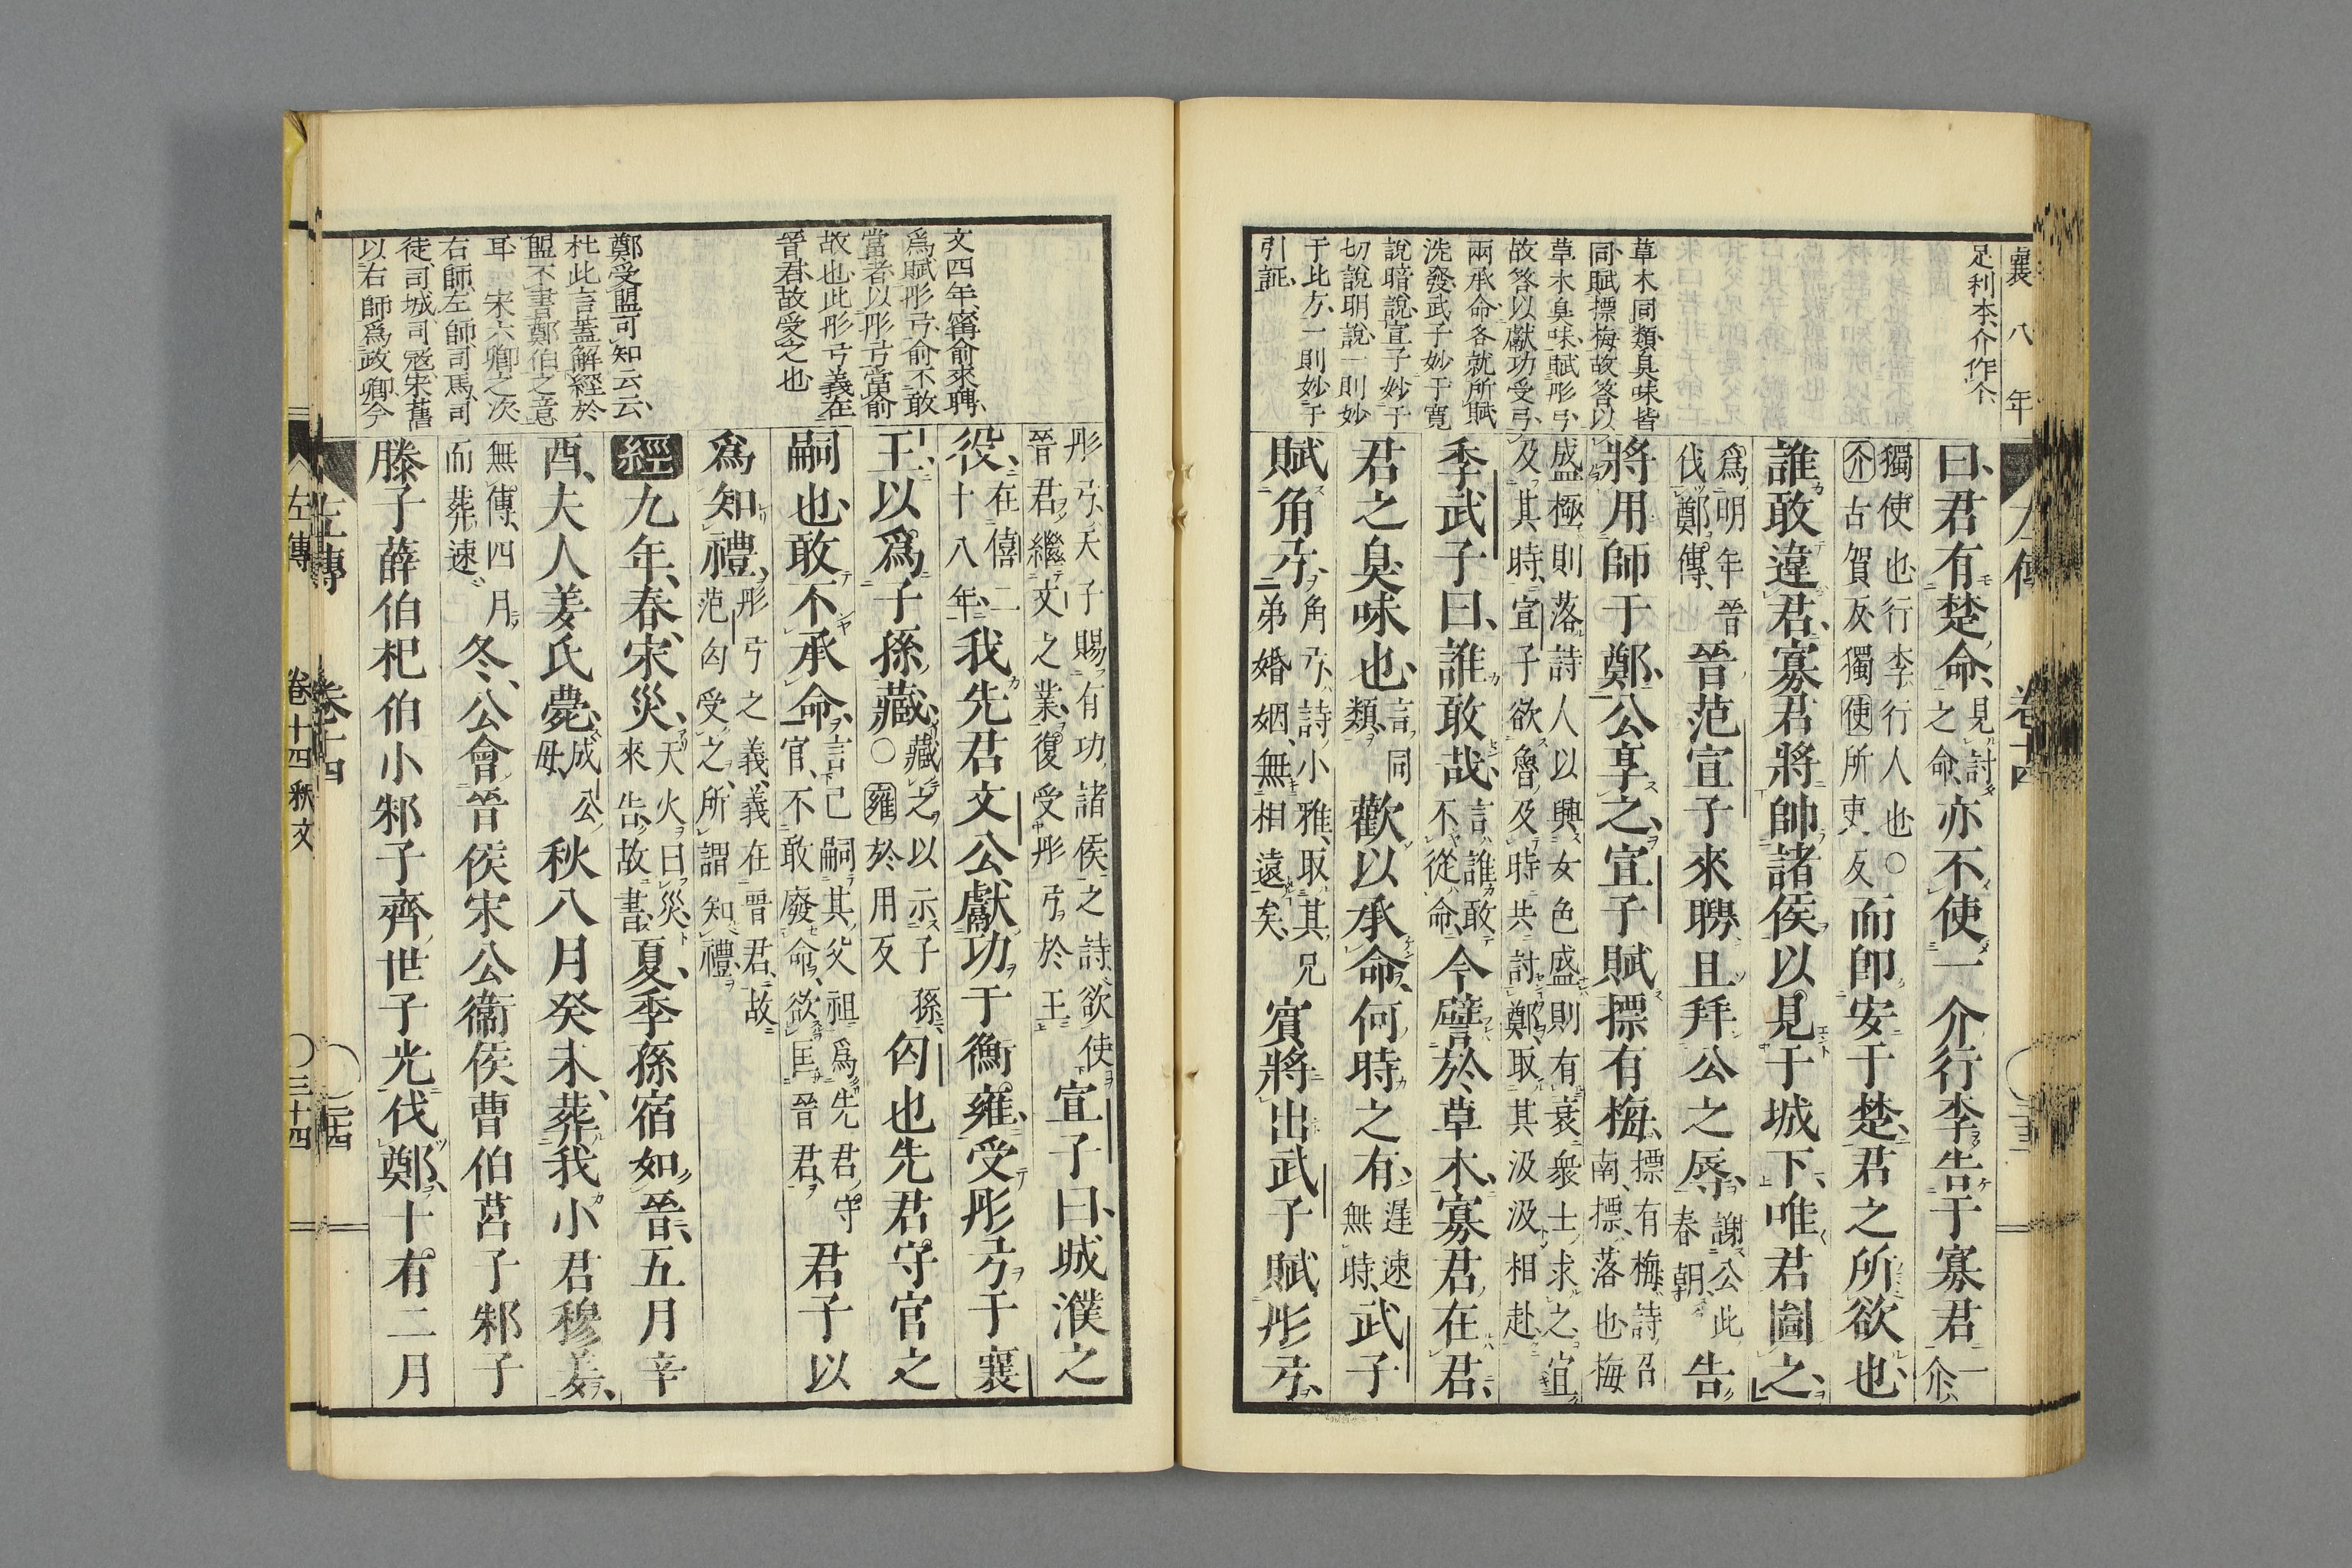 襄八年
足利本、介作个、
草木同類、臭味皆
同、賦摽梅故答以
草木臭味、賦彤弓、
故答以獻功受弓、
兩承命、各就所賦
洗發、武子妙于寬
說暗說、宣子妙于
切說明說、一則妙
于比方、一則妙于
引証、
曰、君有楚命、見討之命、亦不使一介行李告于寡君、一介、
獨使也、行李、行人也○介古賀反獨使所吏反而卽安于楚、君之所欲也、
誰敢違君、寡君將帥諸侯以見于城下、唯君圖之、
爲明年晉伐鄭傳、晉范宣子來聘、且拜公之辱、謝公此春朝、告
將用師于鄭、公享之、宣子賦摽有梅、摽有梅、詩召南、摽、落也、梅
盛極則落、詩人以興女色盛則有衰、衆士求之、宜
及其時、宣子欲魯及時共討鄭、取其汲汲相赴、
季武子曰、誰敢哉、言誰敢不從命、今譬於草木、寡君在君、
君之臭味也、言同類、歡以承命、何時之有、遲速無時、武子
賦角弓、角弓、詩小雅、取其兄弟婚姻、無相遠矣、賓將出、武子賦彤弓、
文四年、甯俞來聘、
爲賦彤弓、俞不敢
當者、以彤弓當俞
故也、此彤弓義在
晉君、故受之也
鄭受盟可知云云、
杜此言蓋解經於
盟不書鄭伯之意
耳　宋六卿之次
右師、左師、司馬、司
徒、司城、司寇、宋舊
以右師爲政卿、今
彤弓、天子賜有功諸侯之詩、欲使晉君繼文之業、復受彤弓於王、宣子曰、城濮之
役、在僖二十八年、我先君文公獻功于衡雍、受彤弓于襄
王、以爲子孫藏、藏之以示子孫、○雍於用反匄也先君守官之
嗣也、敢不承命、言己嗣其父祖、爲先君守官、不敢廢命、欲匡晉君、君子以
爲知禮、彤弓之義、義在晉君、故范匄受之、所謂知禮、
經九年、春、宋災、天火曰災、來告、故書、夏、季孫宿如晉、五月辛
酉、夫人姜氏薨、成公母、秋八月癸未、葬我小君穆姜、
無傳、四月而葬、速、冬、公會晉侯宋公衞侯曹伯莒子邾子
滕子薛伯杞伯小邾子齊世子光伐鄭、十有二月
左傳　卷十四　○三十四
左傳　卷十四　釈文　○三十四